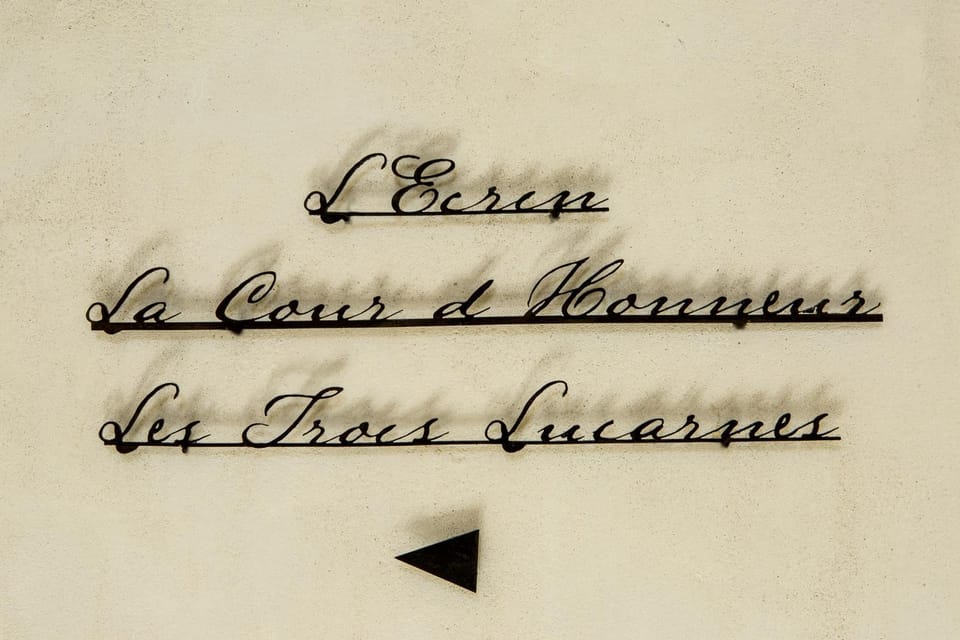 L'Ecrin
La Cour d Honneur
Les Trois Lucarnes